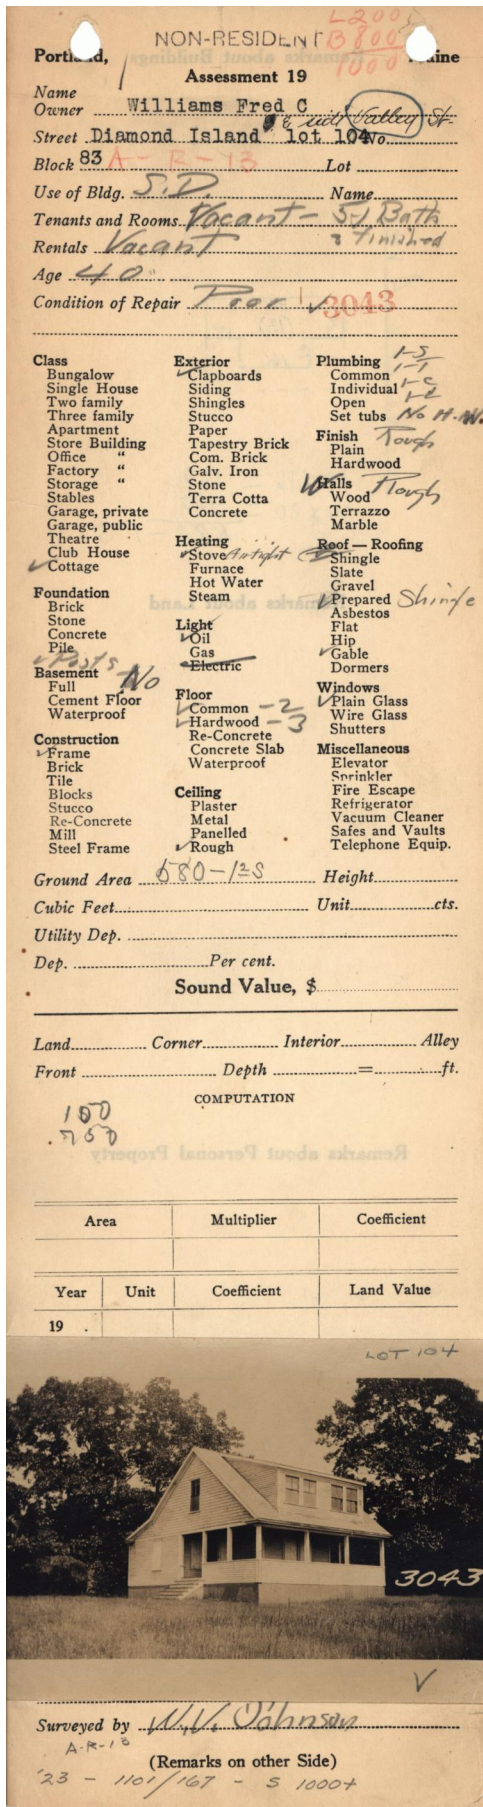 L 200
NON-RESIDENT B 800
Portland, 1000 Maine
Assessment 19
Name
Owner Williams Fred C
Street Diamond Island lot 104 No. Valley St.
Block 83 A-R-13 Lot
Use of Bldg. S.D. Name
Tenants and Rooms Vacant - 5-1 Bath
Rentals Vacant 3 finished
Age 40
Condition of Repair Poor 3043
Class
Bungalow
Single House
Two family
Three family
Apartment
Store Building
Office "
Factory "
Storage "
Stables
Garage, private
Garage, public
Theatre
Club House
✓ Cottage
Foundation
Brick
Stone
Concrete
Pile
✓ Posts
Basement No
Full
Cement Floor
Waterproof
Construction
✓ Frame
Brick
Tile
Blocks
Stucco
Re-Concrete
Mill
Steel Frame
Exterior
✓ Clapboards
Siding
Shingles
Stucco
Paper
Tapestry Brick
Com. Brick
Galv. Iron
Stone
Terra Cotta
Concrete
Heating
✓ Stove Airtight
Furnace
Hot Water
Steam
Light
✓ Oil
Gas
Electric
Floor
✓ Common - 2
✓ Hardwood - 3
Re-Concrete
Concrete Slab
Waterproof
Ceiling
Plaster
Metal
Panelled
✓ Rough
Plumbing 1-S
Common 1-T
Individual 1-C
Open
Set tubs No H.W.
Finish Rough
Plain
Hardwood
Walls Rough
Wood
Terrazzo
Marble
Roof — Roofing
Shingle
Slate
Gravel
✓ Prepared Shingle
Asbestos
Flat
Hip
✓ Gable
Dormers
Windows
✓ Plain Glass
Wire Glass
Shutters
Miscellaneous
Elevator
Sprinkler
Fire Escape
Refrigerator
Vacuum Cleaner
Safes and Vaults
Telephone Equip.
Ground Area 680-1½S Height
Cubic Feet Unit cts.
Utility Dep.
Dep. Per cent.
Sound Value, $
Land Corner Interior Alley
Front Depth = ft.
COMPUTATION
150
750
Area Multiplier Coefficient
Year Unit Coefficient Land Value
19
LOT 104
3043
Surveyed by W.V. Johnson
A-R-13
(Remarks on other Side)
'23 - 1101/167 - S 1000+